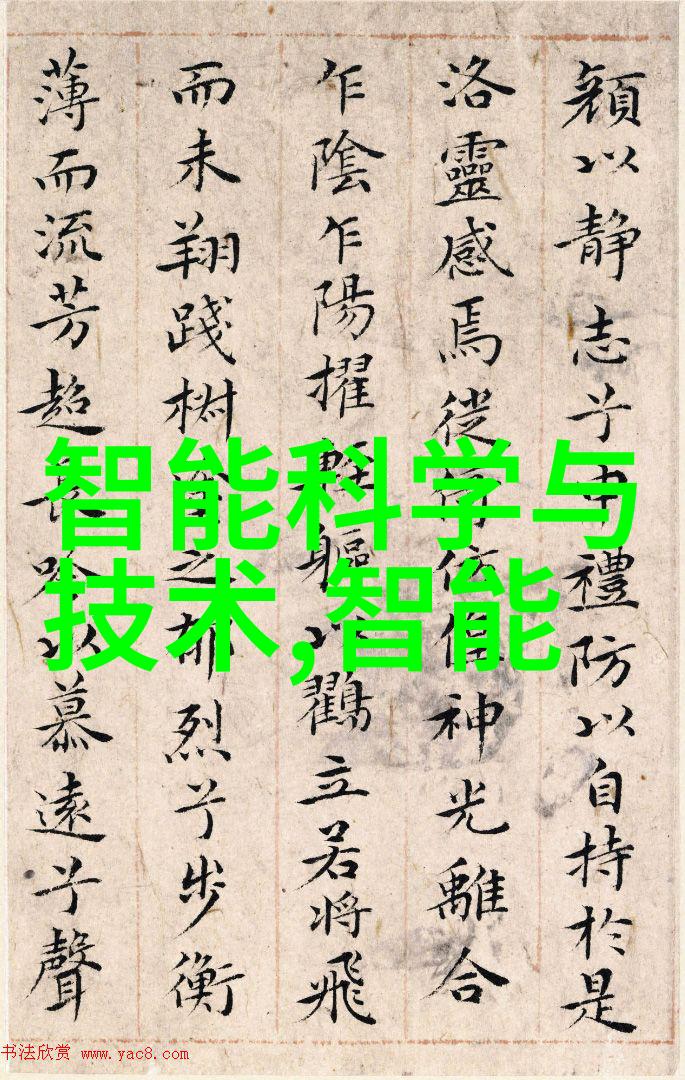 顔以静志兮申禮防以自持於是
洛靈感焉徙神光離合
乍陰乍陽擢輕軀以鸖立若將飛
而未翔踐椒之郁烈兮步衡
薄而流芳超長吟以慕遠兮聲
智能科学与
技术,智能
书法欣赏 www.yac8.com